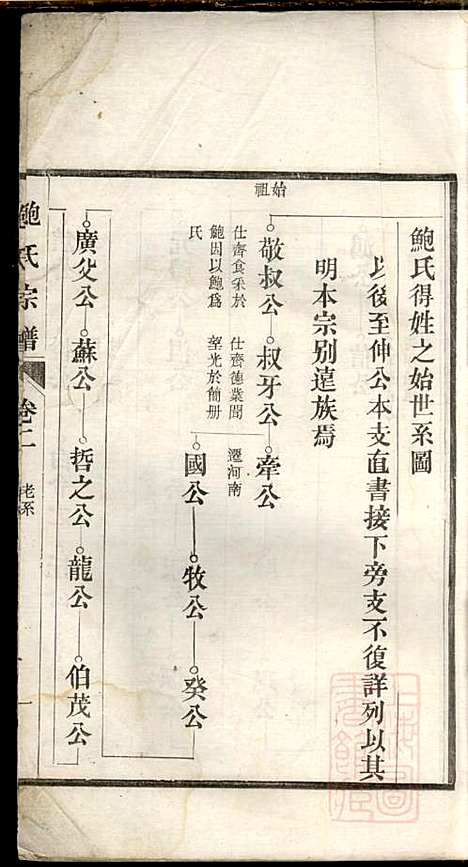 鮑氏得姓之始世系圖
以後至伸公本支直書接下旁支不復詳列以其
明本宗別遠族焉
始祖
敬叔公
仕齊食采於
鮑因以鮑爲
氏
叔牙公
仕齊德業聞
望光於簡册
牽公
遷河南
國公
牧公
癸公
廣父公
蘇公
哲之公
龍公
伯茂公
鮑氏宗譜
卷二
老系
一